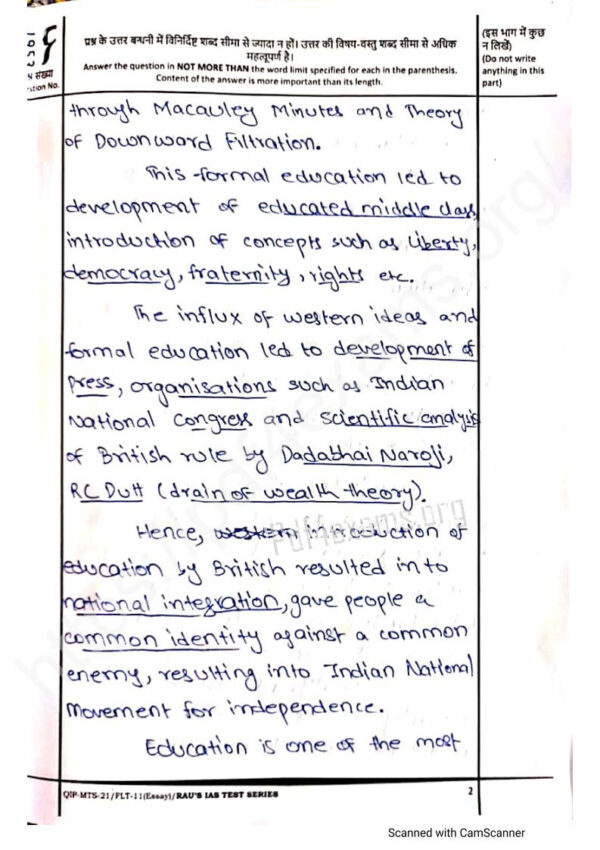 प्रश्न के उत्तर बन्धनी में विनिर्दिष्ट शब्द सीमा से ज्यादा न हों। उत्तर की विषय-वस्तु शब्द सीमा से अधिक
महत्वपूर्ण है।
Answer the question in NOT MORE THAN the word limit specified for each in the parenthesis.
Content of the answer is more important than its length.
(इस भाग में कुछ
न लिखें)
(Do not write
anything in this
part)
संख्या
stion No.
through Macauley Minutes and Theory
of Downward Filtration.
This formal education led to
development of educated middle class,
introduction of concepts such as liberty,
democracy, fraternity, rights etc.
The influx of western ideas and
formal education led to development of
Press, organisations such as Indian
National Congress and scientific analysis
of British rule by Dadabhai Naroji,
RC Dutt (drain of wealth theory).
Hence, western introduction of
education by British resulted in to
national integration, gave people a
common identity against a common
enemy, resulting into Indian National
Movement for independence.
Education is one of the most
QIP-MTS-21/FLT-11(Essay)/RAU'S IAS TEST SERIES
2
Pdf4exams.org
Scanned with CamScanner